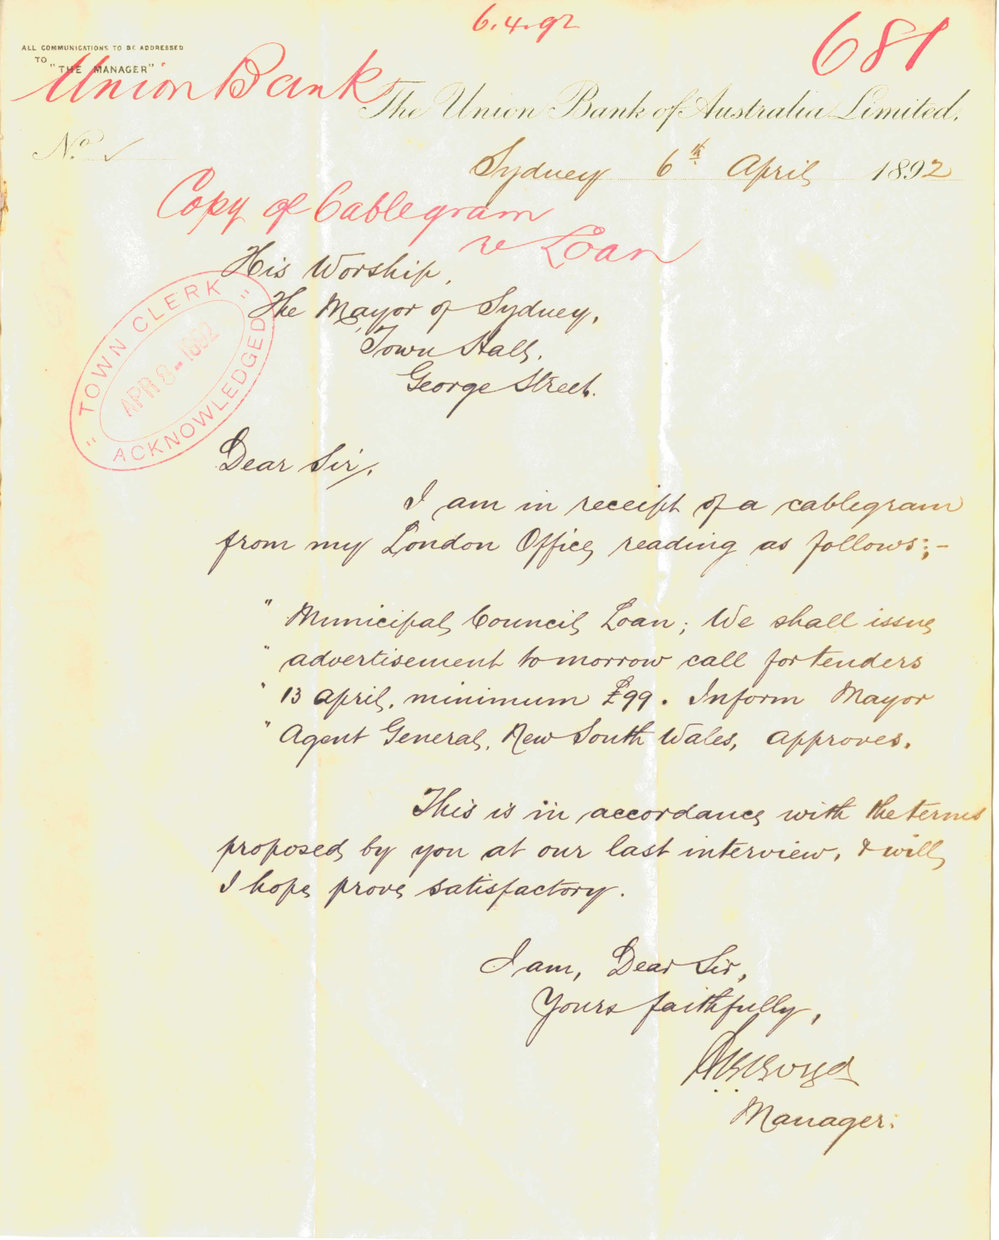 6.4.92
681
ALL COMMUNICATIONS TO BE ADDRESSED
TO
"THE MANAGER"
Union Bank
The Union Bank of Australia Limited.
No.
Sydney 6th April 1892
Copy of Cablegram
re Loan
His Worship,
The Mayor of Sydney,
Town Hall,
George Street.
"TOWN CLERK"
APR 8-1892
ACKNOWLEDGED
Dear Sir,
I am in receipt of a cablegram
from my London Office, reading as follows;-
" Municipal Council Loan; We shall issue
" advertisement tomorrow call for tenders
" 13 April, minimum £99. Inform Mayor
" Agent General, New South Wales, approves.
This is in accordance with the terms
proposed by you at our last interview, & will
I hope prove satisfactory.
I am, Dear Sir,
Yours faithfully,
Boyd
Manager.